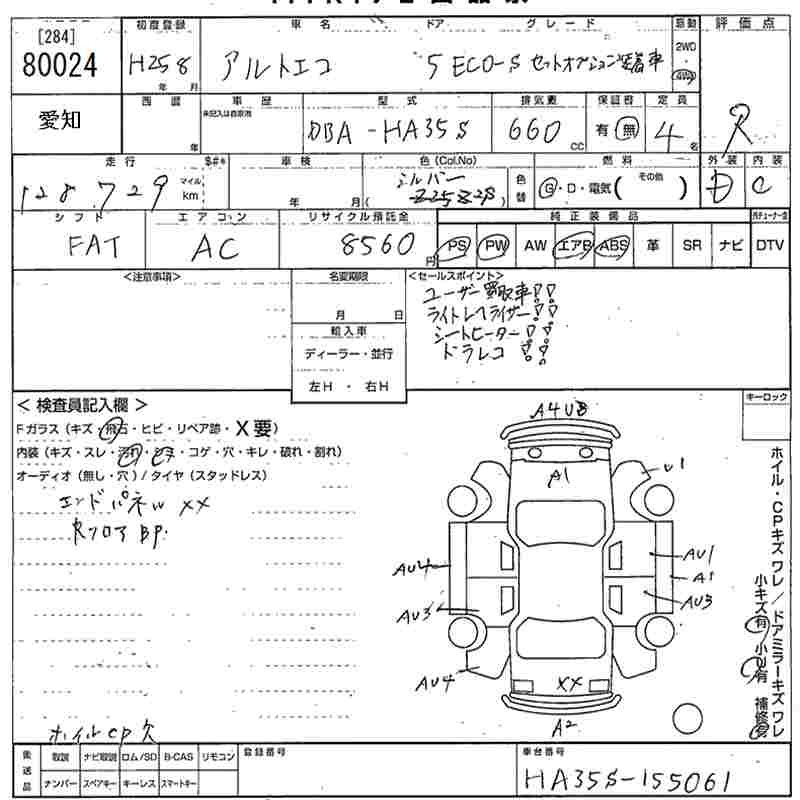 [284]
80024
初度登録 車名 ドア グレード 駆動 評価点
H25 8 年 月 アルトエコ 5 ECO-S セットオプション装着車 2WD ・ 4WD R
愛知
西暦 車歴 型式 排気量 保証書 定員
年 未記入は自家用 DBA-HA35S 660 CC 有 無 4 名
走行 $#* 車検 色(Col.No) 燃料 外装 内装
128,729 マイル km 年 月 シルバー ( Z2S ) 色替 G・D・電気( その他 ) D C
シフト エアコン リサイクル預託金 純正装備品
FAT AC 8560 円 PS PW AW エアB ABS 革 SR ナビ DTV
<注意事項> 名変期限 <セールスポイント>
月 日
輸入車
ディーラー・並行
左H ・ 右H
ユーザー買取車!!
ライトレベライザー!!
シートヒーター!!
ドラレコ !!
< 検査員記入欄 >
Fガラス(キズ・飛石・ヒビ・リペア跡・X要)
内装(キズ・スレ・汚れ・シミ・コゲ・穴・キレ・破れ・割れ)
オーディオ(無し・穴)/タイヤ(スタッドレス)
エンドパネル XX
Rフロア BP
ホイルCP欠
キーロック
A4U3
A1
U1
AU4
AU1
A1
AU3
AU3
AU4
XX
A2
ホイル・CPキズ ワレ/ドアミラーキズ ワレ
小キズ有 小U有 補修有
後送品 取説 ナビ取説 ロム/SD B-CAS リモコン
ナンバー スペアキー キーレス スマートキー
登録番号 車台番号
HA35S-155061